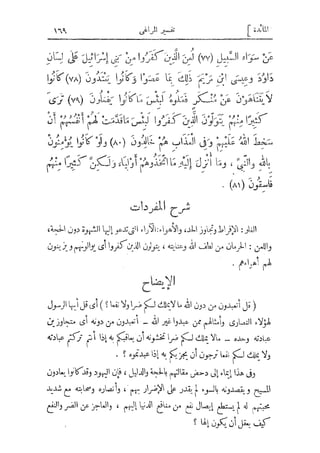 المائدة ]
تفسير المراغى
١٦٩
عَنْ سَوَاءِ السَّبِيلِ (٧٧) لُعِنَ الَّذِينَ كَفَرُوا مِنْ بَنِي إِسْرَائِيلَ عَلَى لِسَانِ
دَاوُدَ وَعِيسَى ابْنِ مَرْيَمَ ذٰلِكَ بِمَا عَصَوْا وَكَانُوا يَعْتَدُونَ (٧٨) كَانُوا
لَا يَتَنَاهَوْنَ عَنْ مُنْكَرٍ فَعَلُوهُ لَبِئْسَ مَا كَانُوا يَفْعَلُونَ (٧٩) تَرَى
كَثِيرًا مِنْهُمْ يَتَوَلَّوْنَ الَّذِينَ كَفَرُوا لَبِئْسَ مَا قَدَّمَتْ لَهُمْ أَنْفُسُهُمْ أَنْ
سَخِطَ اللهُ عَلَيْهِمْ وَفِى الْعَذَابِ هُمْ خَالِدُونَ (٨٠) وَلَوْ كَانُوا يُؤْمِنُونَ
بِاللهِ وَالنَّبِىِّ وَمَا أُنْزِلَ إِلَيْهِ مَا اتَّخَذُوهُمْ أَوْلِيَاءَ، وَلٰكِنَّ كَثِيرًا مِنْهُمْ
فَاسِقُونَ (٨١) .
شرح المفردات
الغلو: الإفراط وتجاوز الحد، والأهواء: الآراء التى تدعو إليها الشهوة دون الحجة،
واللعن: الحرمان من لطف الله وعنايته ، يتولون الذين كفروا أى يوالونهم ويزينون
لهم أهواءهم .
الإيضاح
( قل أتعبدون من دون الله ما لا يملك لكم ضرا ولا نفعا؟ ) أى قل أيها الرسول
لهؤلاء النصارى وأمثالهم ممن عبدوا غير الله – أتعبدون من دونه أى متجاوزين
عبادته وحده – ما لا يملك لكم ضرا تخشونه أن يعاقبكم به إذا أنتم تركتم عبادته
ولا يملك لكم نفعا ترجون أن يجزيكم به إذا عبدتموه ؟ .
وفى هذا إيماء إلى دحض مقالتهم بالحجة والدليل ، فإن اليهود وقد كانوا يعادون
المسيح ويقصدونه بالسوء لم يقدر على الإضرار بهم ، وأنصاره وصحابته مع شديد
محبتهم له لم يستطع إيصال نفع من منافع الدنيا إليهم ، والعاجز عن الضر والنفع
كيف يعقل أن يكون إلها ؟